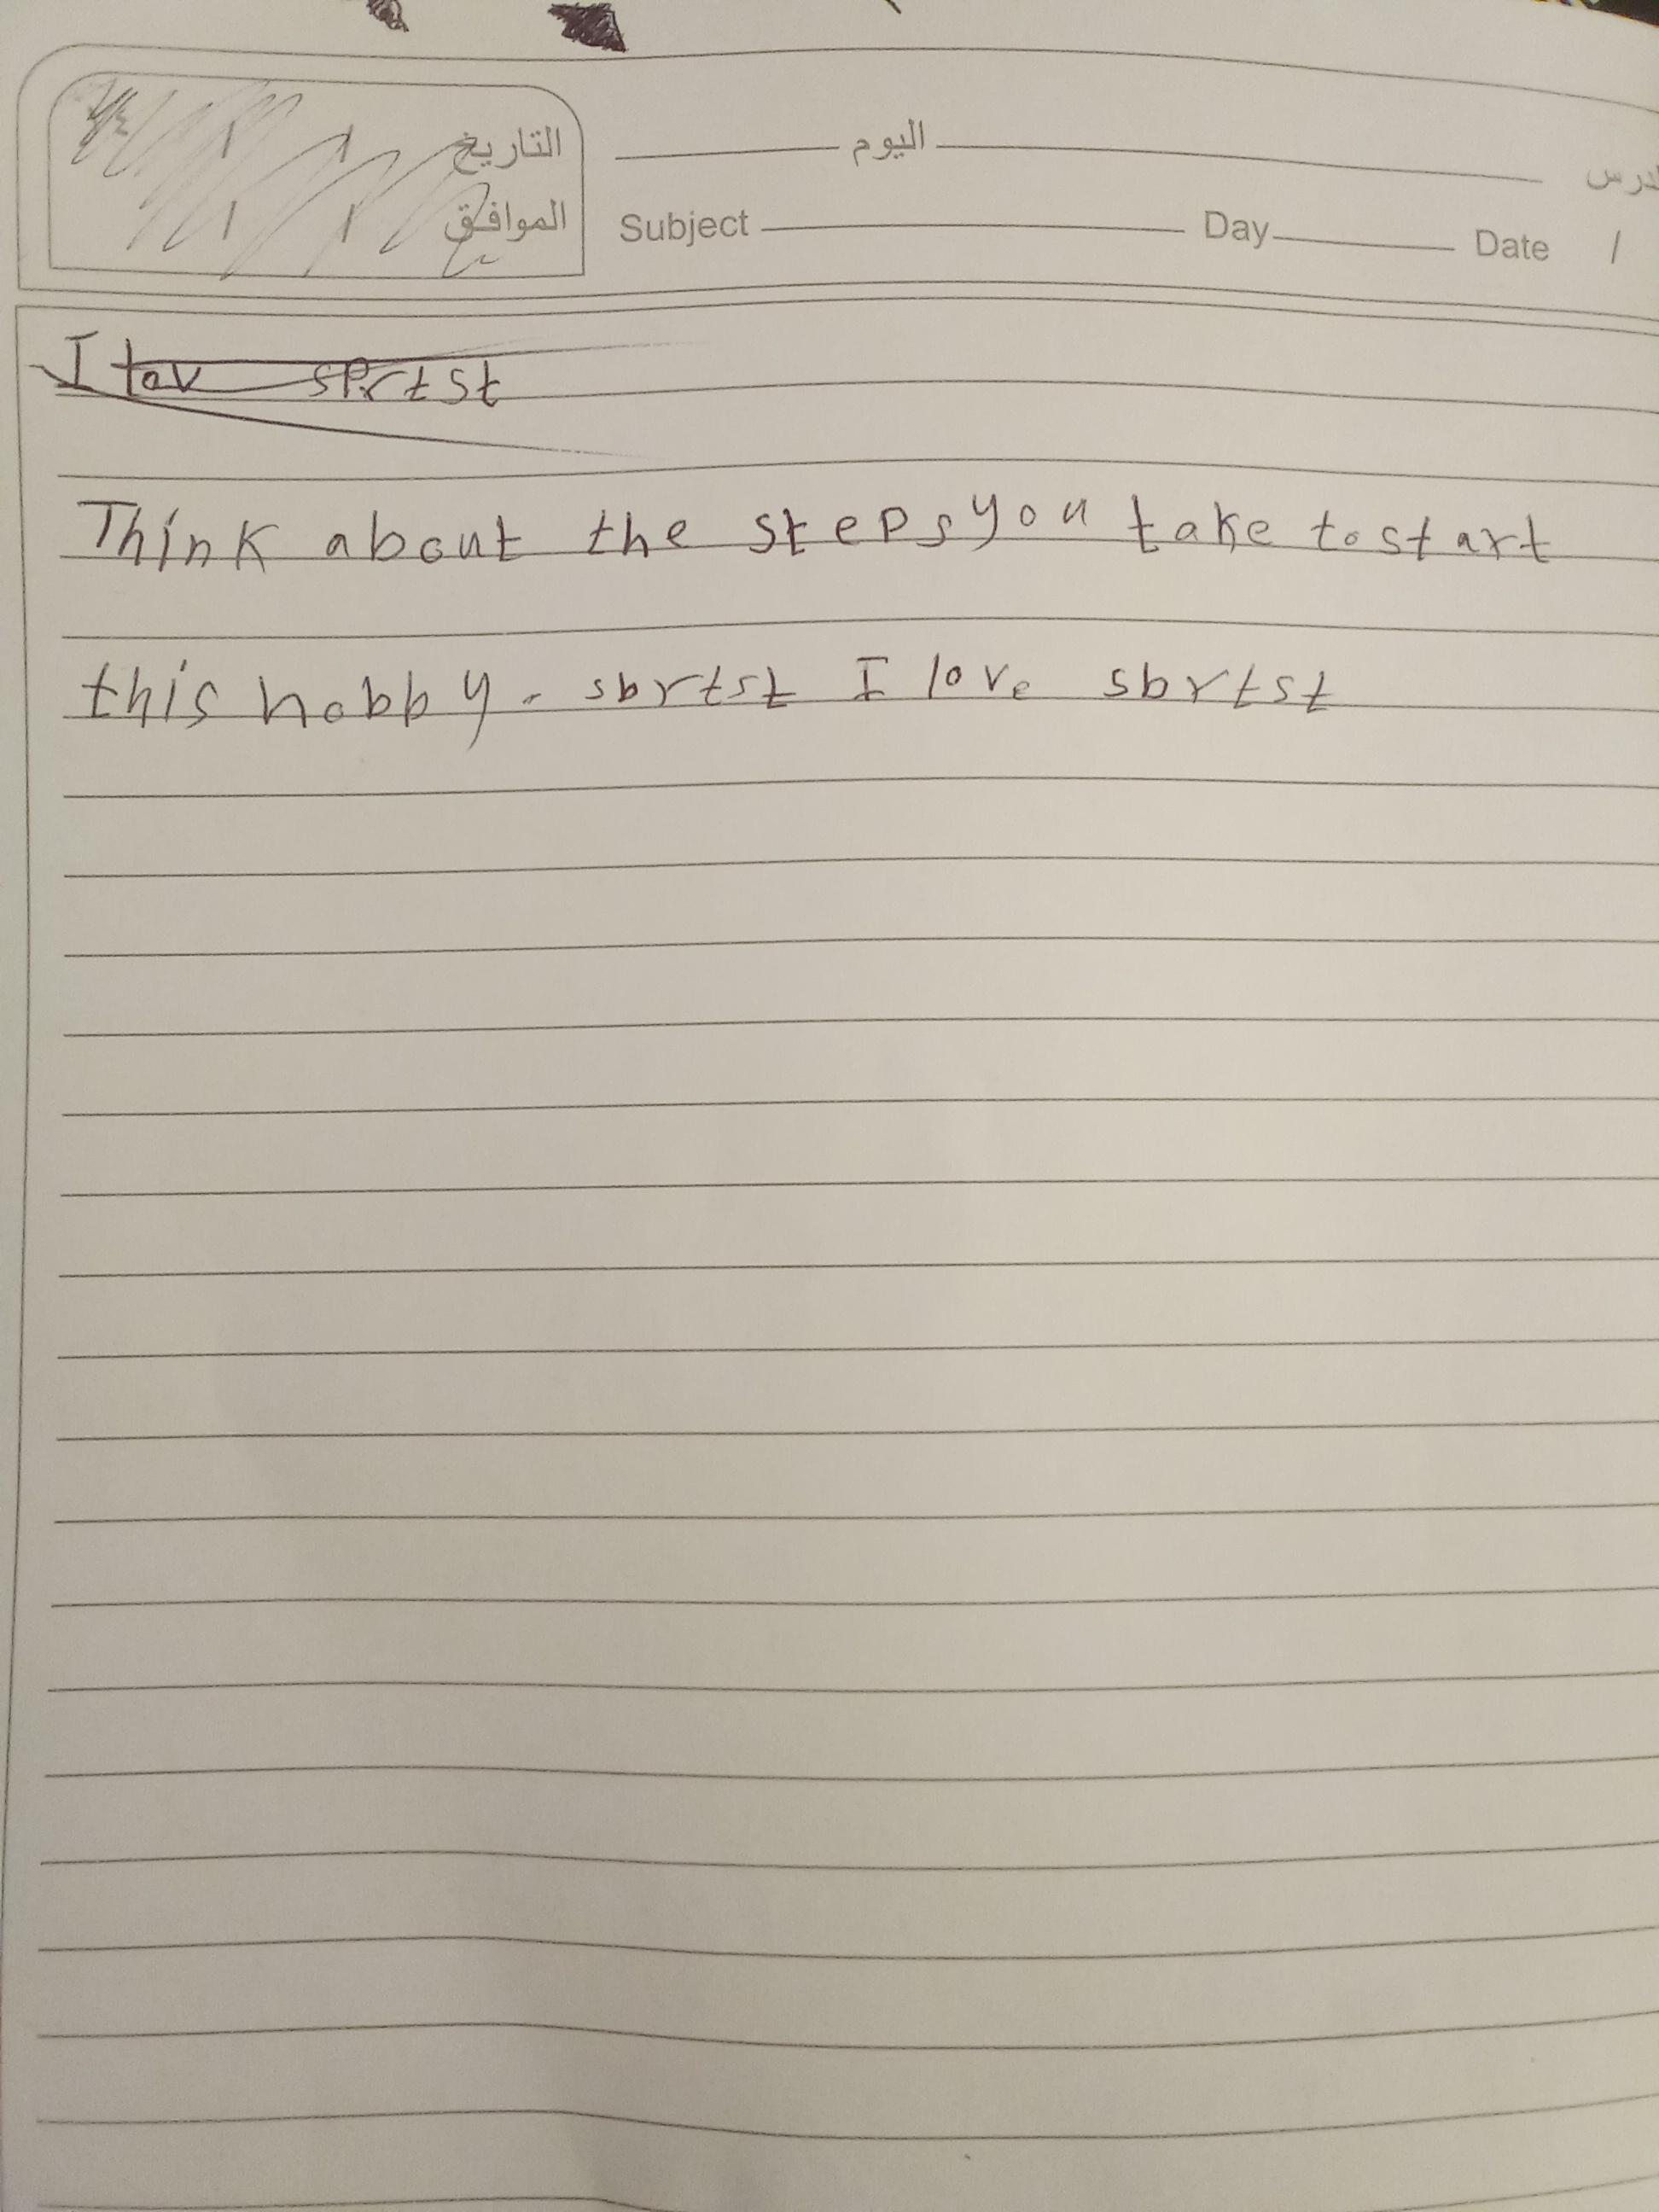 التاريخ / / اليوم
الموافق / / Subject Day Date /
I lov sprtst
Think about the steps you take to start
this hobby. sbrtst I love sbrtst